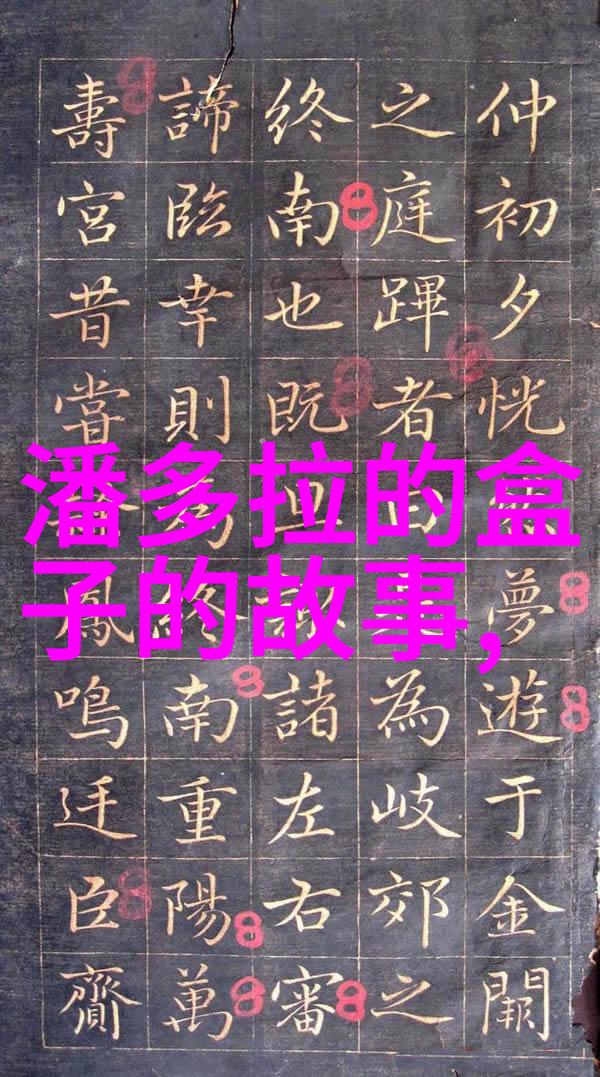 潘多拉的盒
子的故事,
仲初夕恍夢遊于金闕
之庭蹕者曰為岐郊之
終南也既諸左右審
諦臨幸則為終南重陽萬
壽宮昔嘗鳳鳴廷臣齎